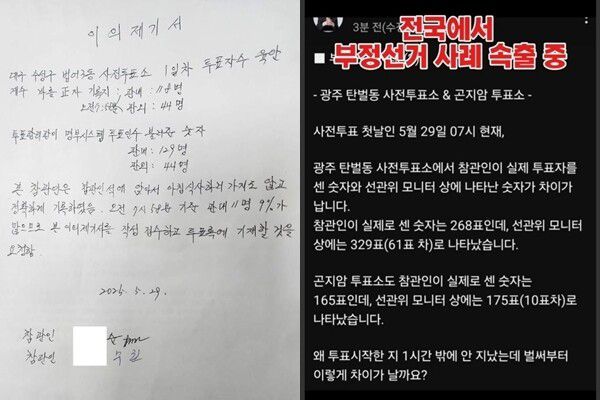 이 의 제 기 서
대구 수성구 범어3동 사전투표소 1일차 투표자수 육안
계수 바를 正자 기록지 : 관내 : 118명
오전 7:58분 관외 : 44명
투표관리관이 명부시스템 투표인수 불러준 숫자
관내 : 129명
관외 : 44명
본 참관인은 참관인석에 앉아서 아침식사하러 가지도 않고
정확하게 기록하였음. 오전 7시 58분 기준 관내 11명 9%가
많으므로 본 이의제기서를 작성 접수하고 투표록에 기재할 것을
요청함
2025. 5. 29.
참관인 순
참관인
3분 전(수
전국에서
부정선거 사례 속출 중
- 광주 탄벌동 사전투표소 & 곤지암 투표소 -
사전투표 첫날인 5월 29일 07시 현재,
광주 탄벌동 사전투표소에서 참관인이 실제 투표자를
센 숫자와 선관위 모니터 상에 나타난 숫자가 차이가
납니다.
참관인이 실제로 센 숫자는 268표인데, 선관위 모니터
상에는 329표(61표 차)로 나타났습니다.
곤지암 투표소도 참관인이 실제로 센 숫자는
165표인데, 선관위 모니터 상에는 175표(10표차)로
나타났습니다.
왜 투표시작한 지 1시간 밖에 안 지났는데 벌써부터
이렇게 차이가 날까요?